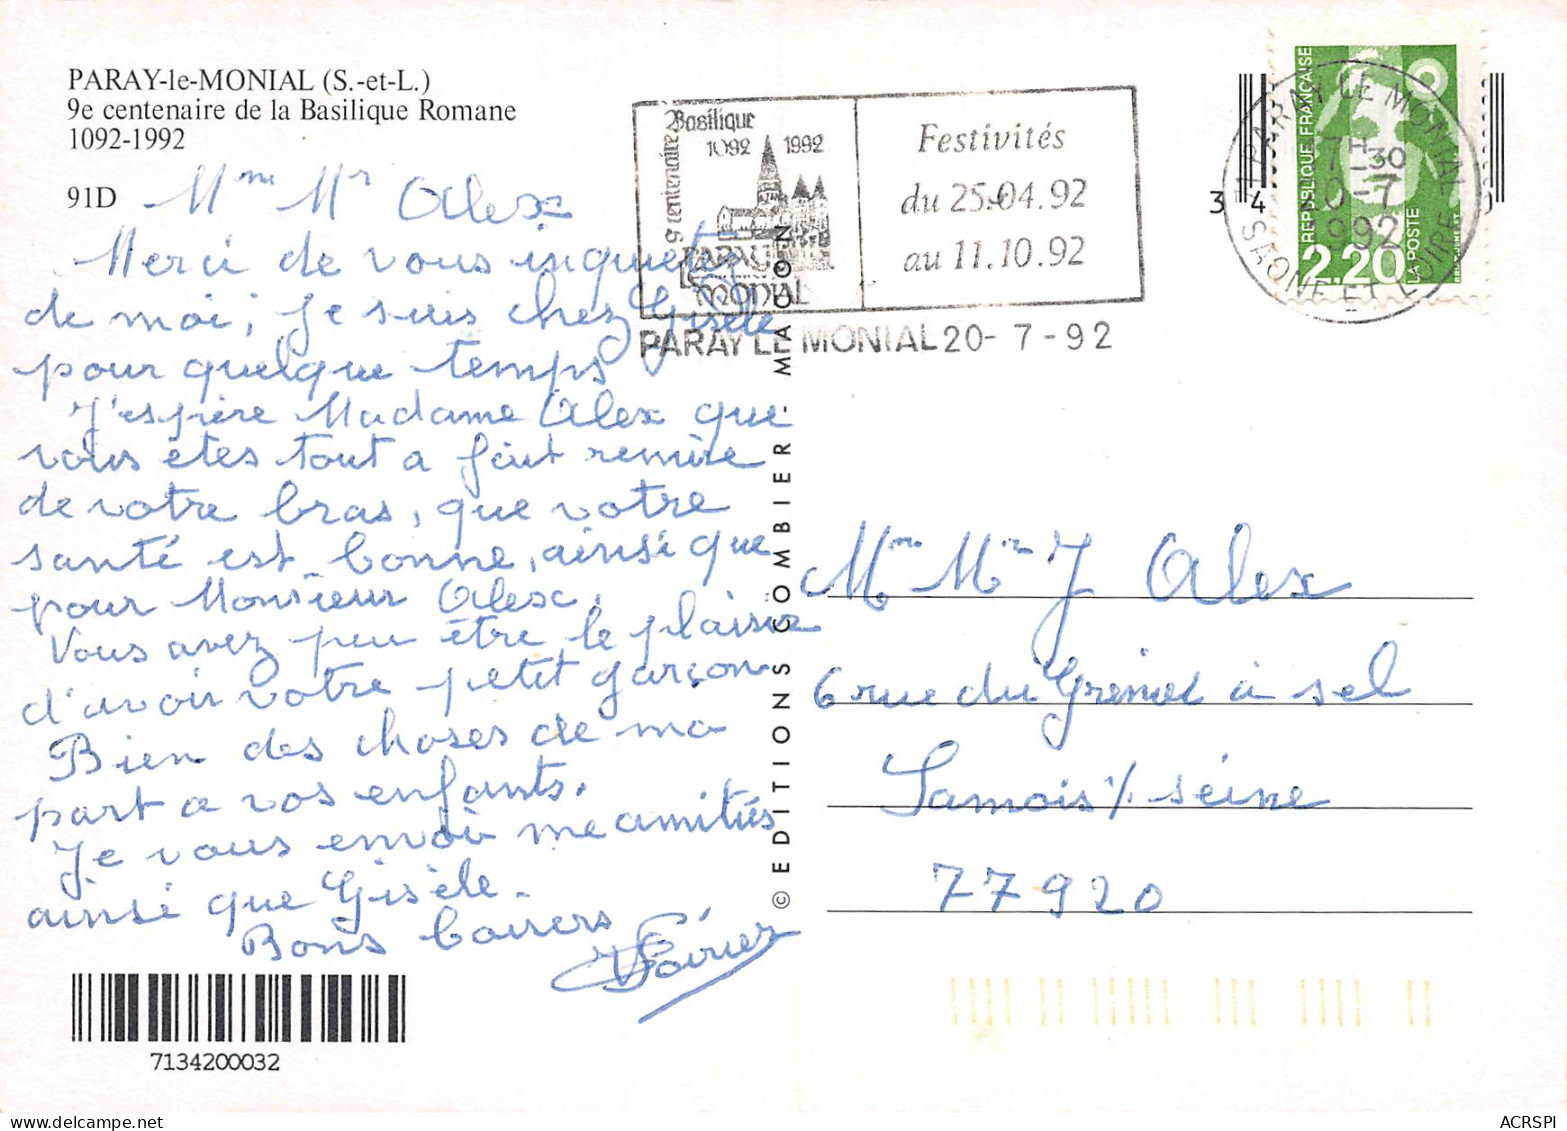 PARAY-le-MONIAL (S.-et-L.)
9e centenaire de la Basilique Romane
1092-1992
91D
Mme Mr Alex
Merci de vous inquietez
de moi, je suis chez Gisèle
pour quelque temps
J'espère Madame Alex que
vous êtes tout a fait remise
de votre bras, que votre
santé est bonne, ainsi que
pour Monsieur Alex.
Vous avez peu être le plaisir
d'avoir votre petit garçon
Bien des choses de ma
part a vos enfants.
Je vous envoie me amitiés
ainsi que Gisèle.
Bons baisers
7134200032
© EDITIONS COMBIER - MACON
9e centenaire
Basilique
1092 1992
PARAY
LE
MONIAL
Festivités
du 25-04.92
au 11.10.92
PARAY LE MONIAL 20- 7 - 92
PARAY LE MONIAL
7H30
20-7
1992
SAONE ET LOIRE
REPUBLIQUE FRANÇAISE
2,20
LA POSTE
3 4
Mme Mr J Alex
6 rue du Grenier à sel
Samois s/ seine
77920
ACRSPI